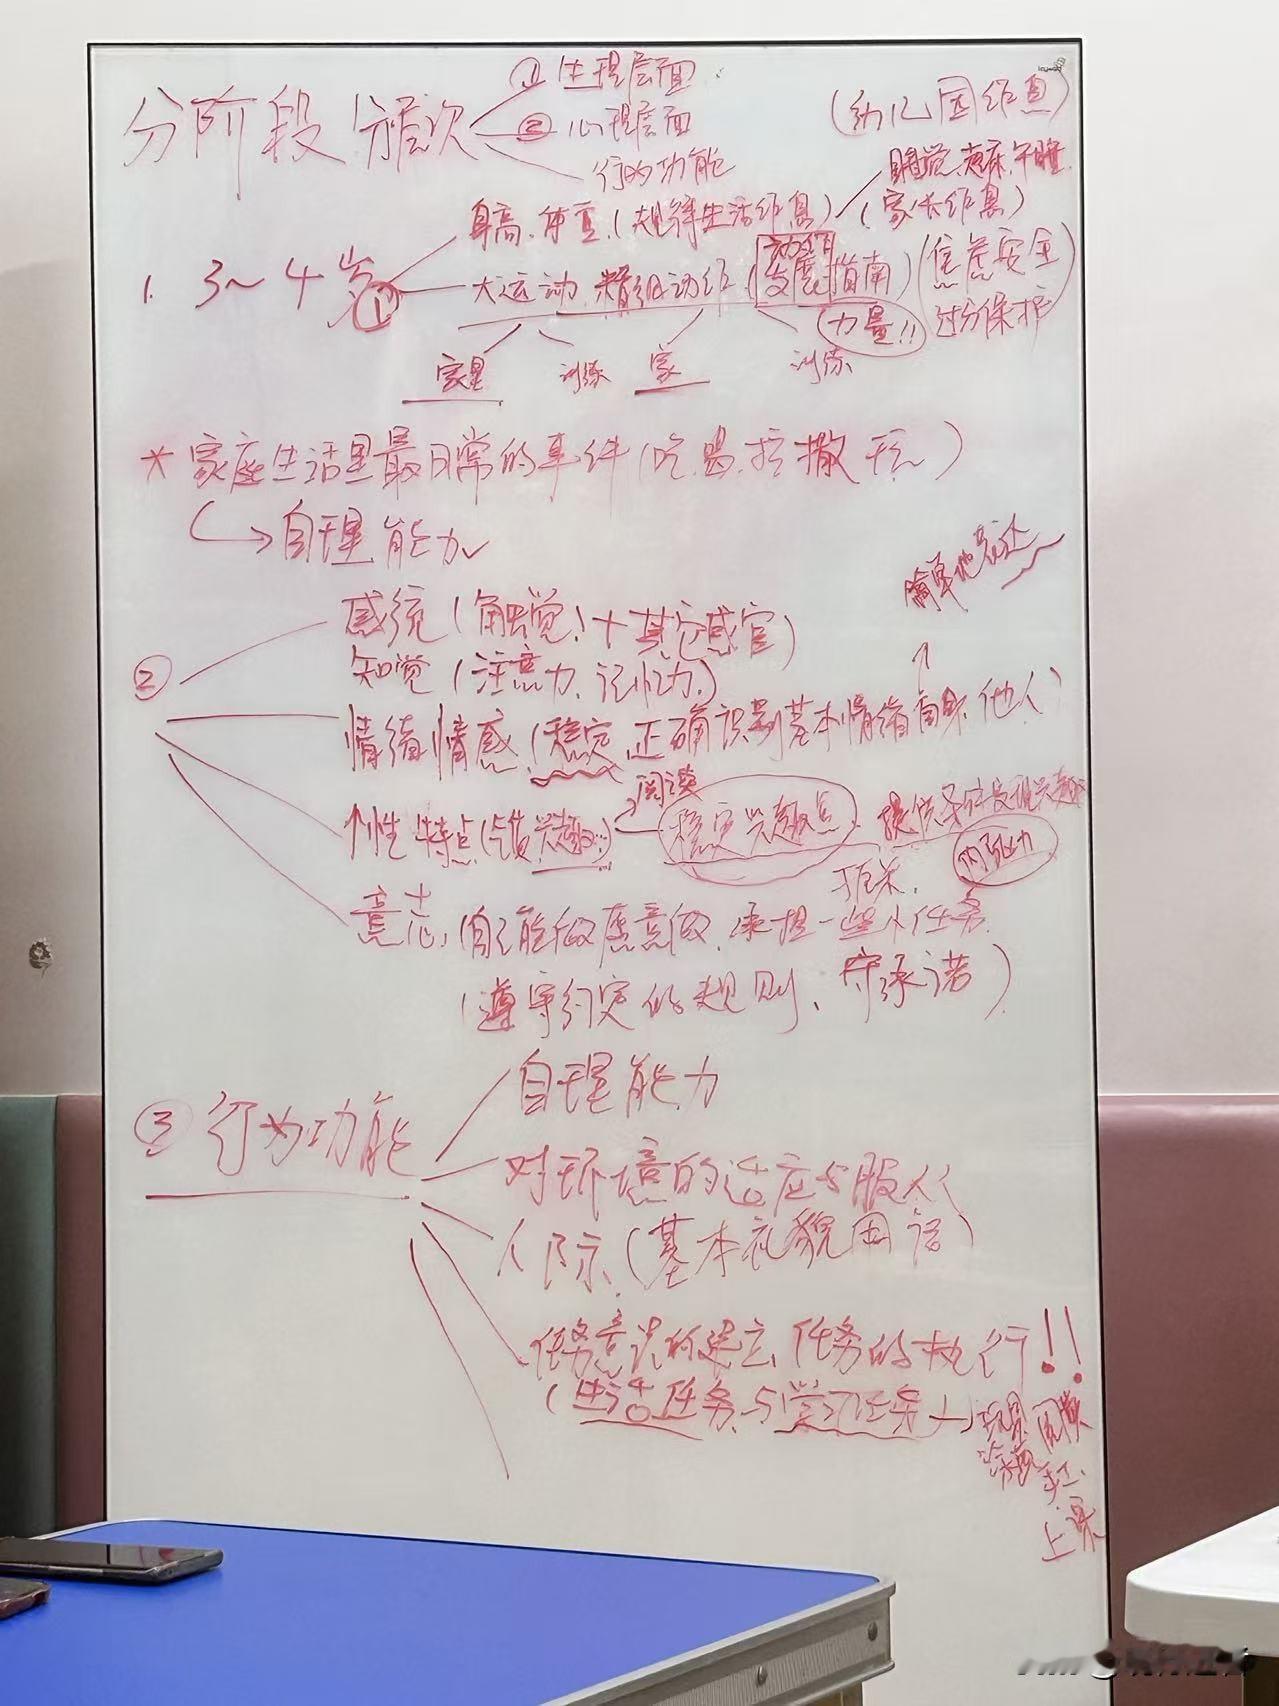 分阶段 分层次
① 生理层面
② 心理层面
行为功能
(幼儿园作息)
睡觉、起床、午睡
身高、体重、(规律生活作息)
(家长作息)
1. 3～4岁 ①
大运动、精细动作 (动作发展指南)
(焦虑 安全
过分保护
(力量!!)
家里
训练
家
训练
* 家庭生活里最日常的事件(吃、喝、拉撒 玩)
自理能力
简单地表达
②
感统 (触觉! + 其它感官)
知觉 (注意力、记忆力、)
情绪情感 (稳定 正确识别基本情绪 自身、他人)
阅读
个性特点 (气质 兴趣…)
稳定兴趣点
提供条件发现兴趣
内驱力
意志、(自己能做愿意做、承担一些小任务
(遵守约定的规则、守承诺)
③ 行为功能
自理能力
对环境的适应与服从
人际、(基本礼貌用语)
任务意识的建立、任务的执行!!
(生活任务与学习任务
玩具
阅读
绘画
手工
上课